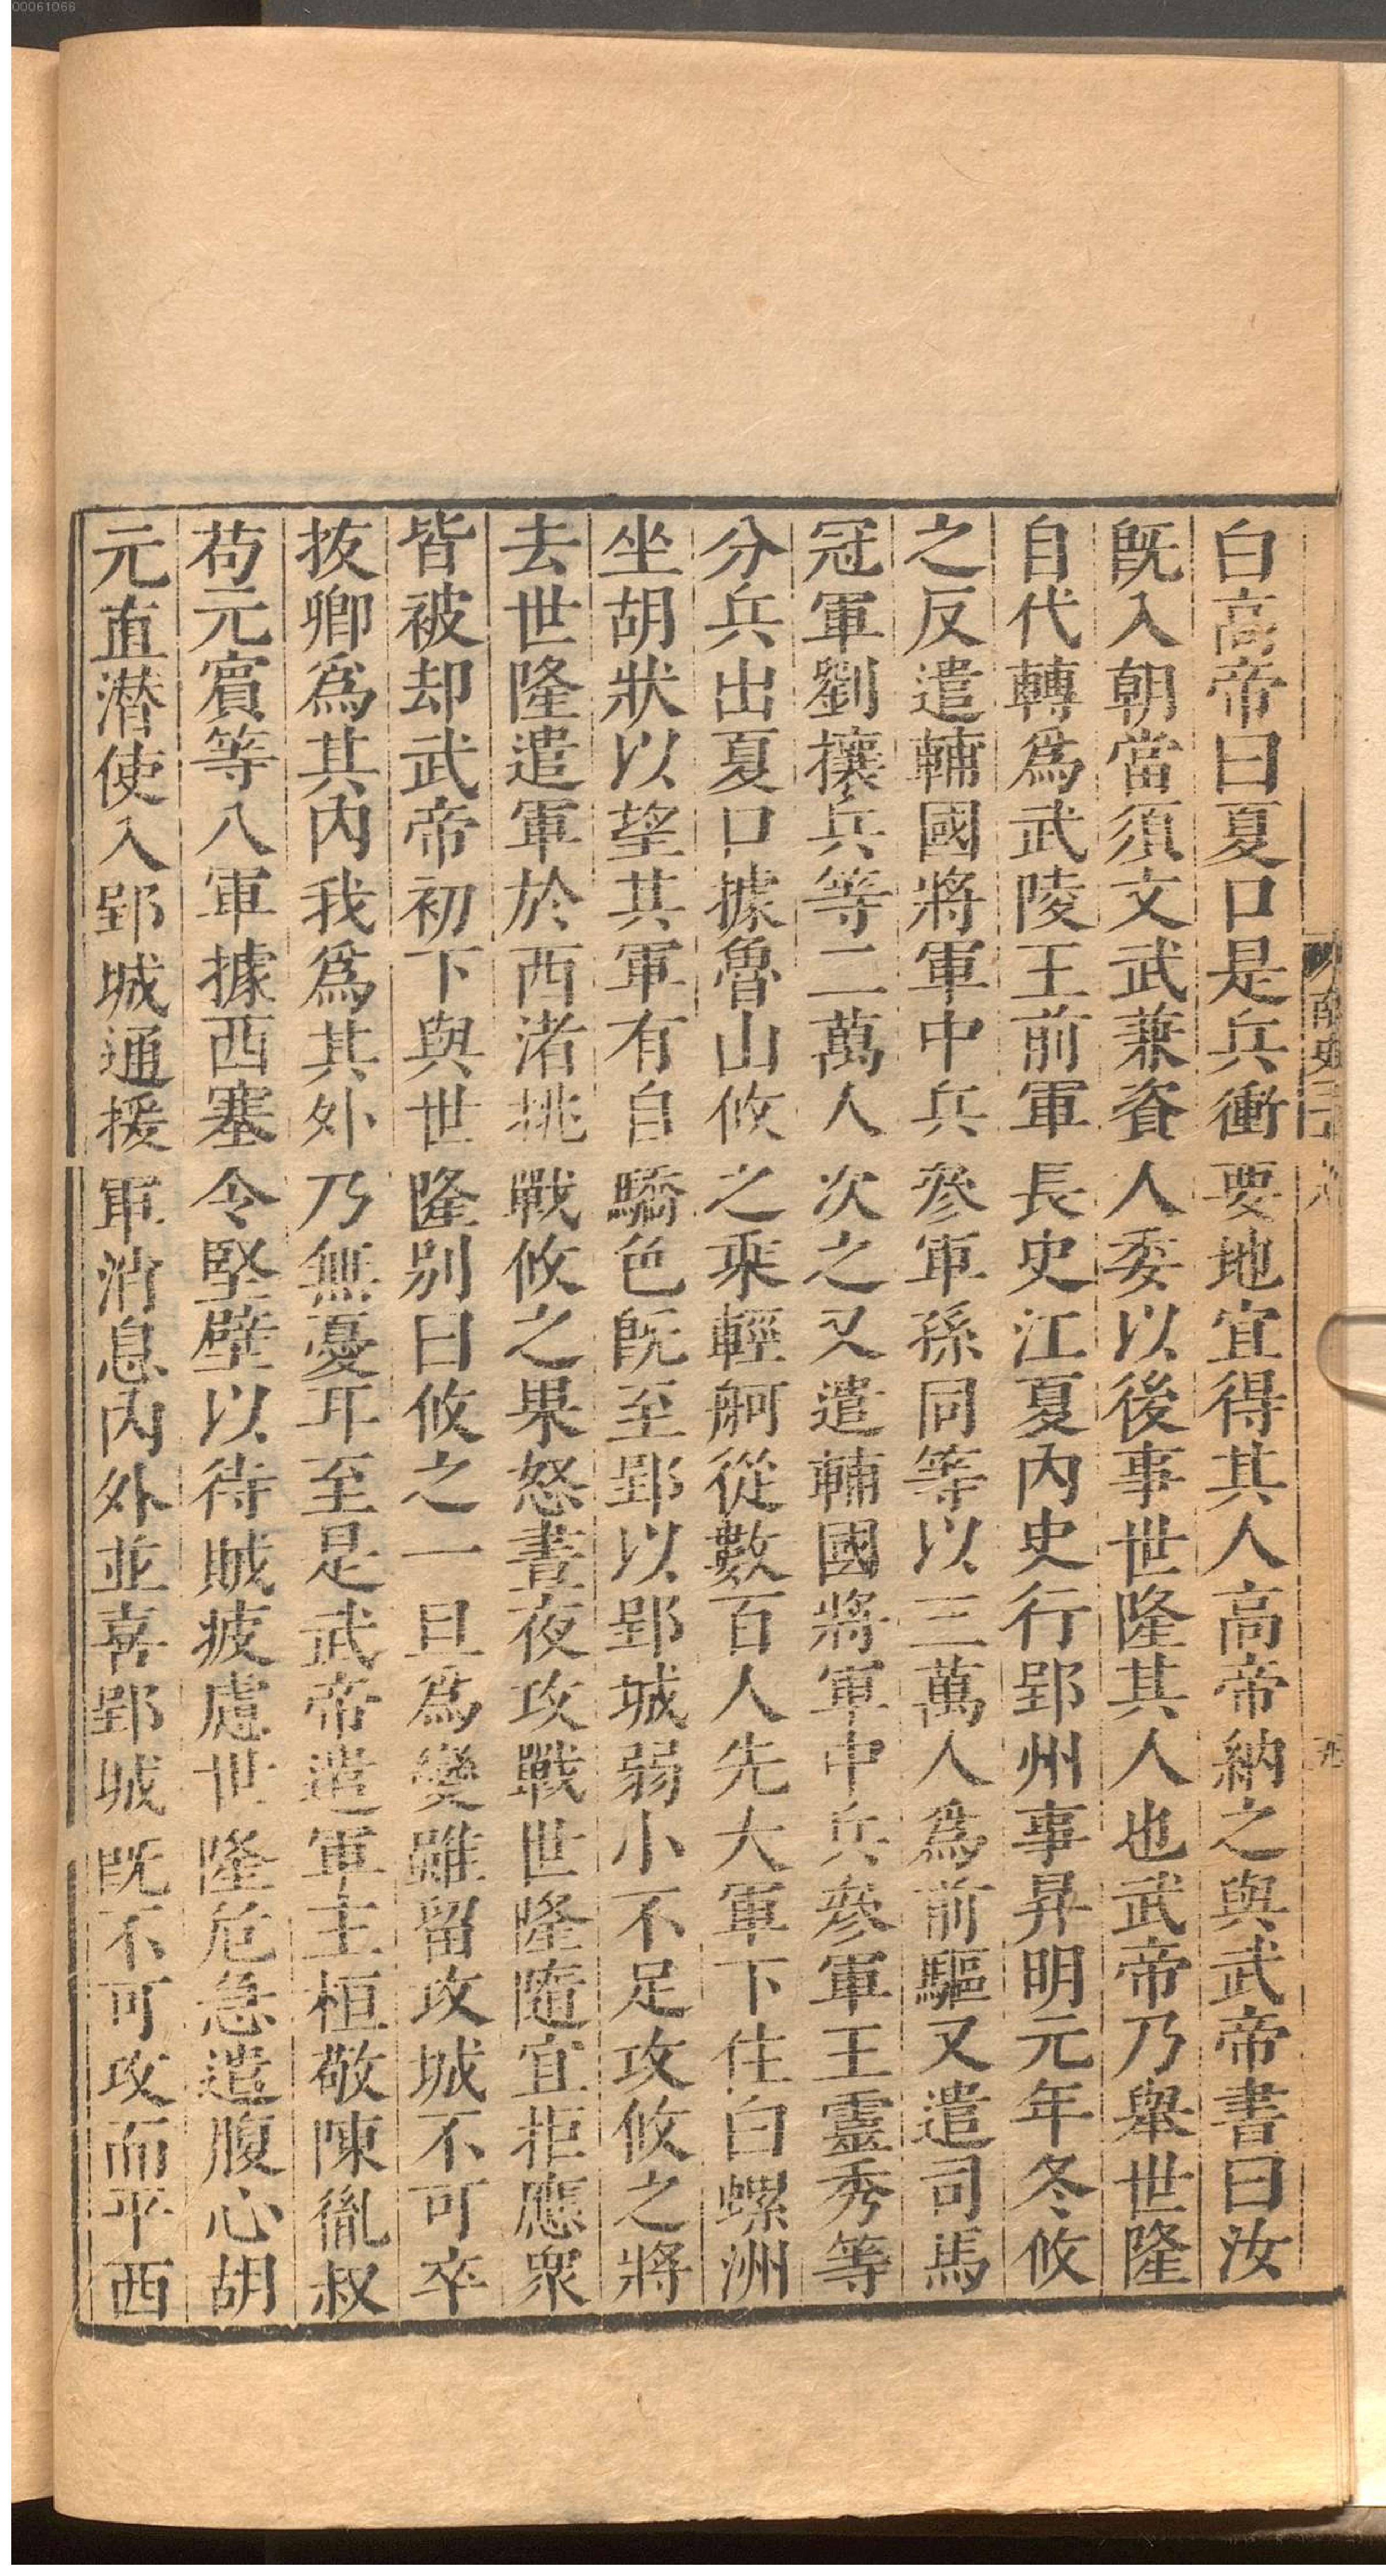 00061066
白高帝曰夏口是兵衝要地宜得其人高帝納之與武帝書曰汝
旣入朝當須文武兼資人委以後事世隆其人也武帝乃舉世隆
自代轉爲武陵王前軍長史江夏內史行郢州事昇明元年冬攸
之反遣輔國將軍中兵參軍孫同等以三萬人爲前驅又遣司馬
冠軍劉攘兵等二萬人次之又遣輔國將軍中兵參軍王靈秀等
分兵出夏口據魯山攸之乘輕舸從數百人先大軍下住白螺洲
坐胡狀以望其軍有自驕色旣至郢以郢城弱小不足攻攸之將
去世隆遣軍於西渚挑戰攸之果怒晝夜攻戰世隆隨宜拒應衆
皆被却武帝初下與世隆别曰攸之一旦爲變雖留攻城不可卒
拔卿爲其內我爲其外乃無憂耳至是武帝遣軍主桓敬陳胤叔
苟元賓等八軍據西塞令堅壁以待賊疲慮世隆危急遣腹心胡
元直潜使入郢城通援軍消息內外並喜郢城旣不可攻而平西